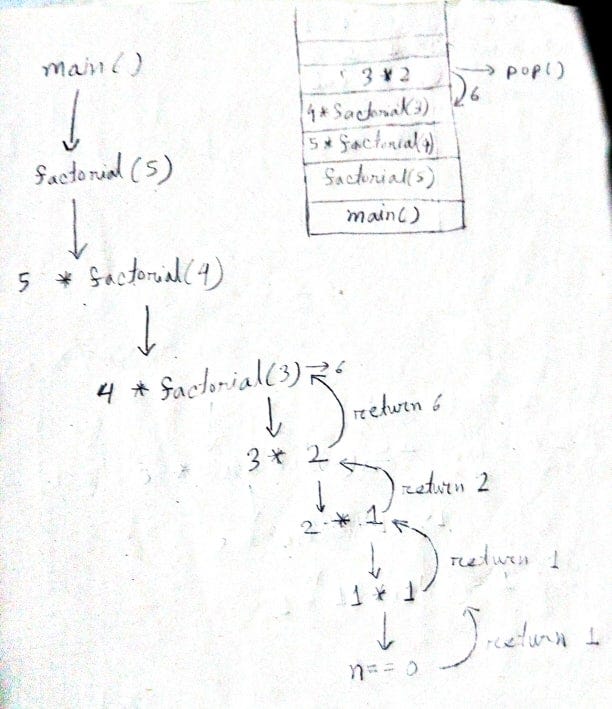 main()
factorial(5)
5 * factorial(4)
4 * factorial(3) → 6
return 6
3 * 2
return 2
2 * 1
return 1
1 * 1
return 1
n == 0
3 * 2 → pop()
6
4 * factorial(3)
5 * factorial(4)
factorial(5)
main()